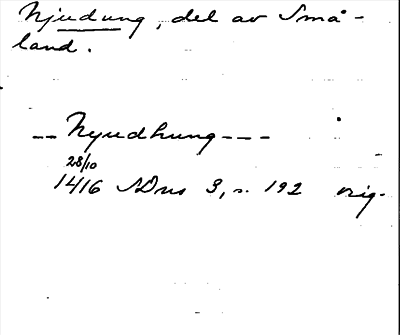 Njudung, del av Små-
land.
-- Nyudhung ---
28/10
1416 SDns 3, s. 192 orig.